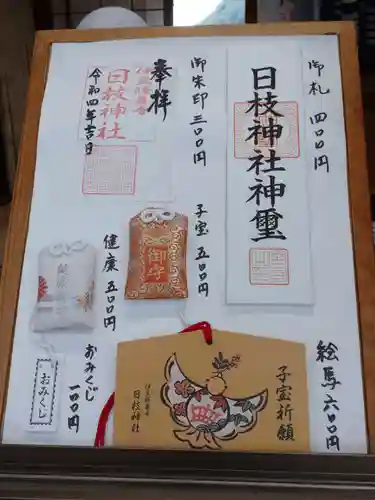 御札 四〇〇円
日枝神社神璽
御朱印 三〇〇円
奉拝
日枝神社
令和四年吉日
子宝 五〇〇円
御守
健康 五〇〇円
おみくじ
一〇〇円
おみくじ
絵馬 六〇〇円
子宝祈願
日枝神社